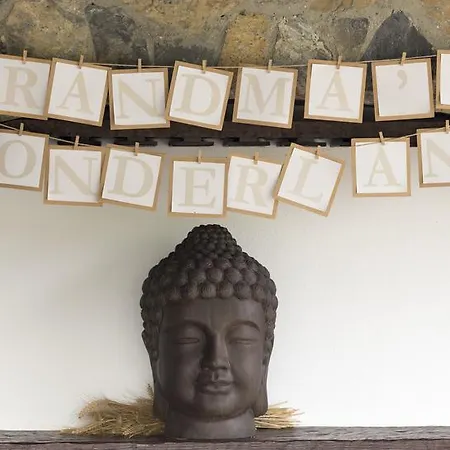 RANDMA'
ONDERLAN